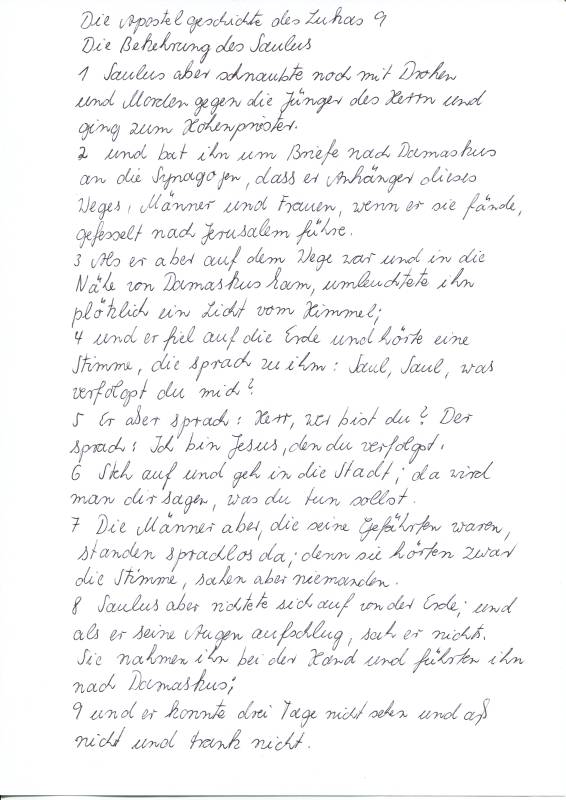 Die Apostelgeschichte des Lukas 9
Die Bekehrung des Saulus
1 Saulus aber schnaubte noch mit Drohen
und Morden gegen die Jünger des Herrn und
ging zum Hohenpriester.
2 und bat ihn um Briefe nach Damaskus
an die Synagogen, dass er Anhänger dieses
Weges, Männer und Frauen, wenn er sie fände,
gefesselt nach Jerusalem führe.
3 Als er aber auf dem Wege war und in die
Nähe von Damaskus kam, umleuchtete ihn
plötzlich ein Licht vom Himmel;
4 und er fiel auf die Erde und hörte eine
Stimme, die sprach zu ihm: Saul, Saul, was
verfolgst du mich?
5 Er aber sprach: Herr, wer bist du? Der
sprach: Ich bin Jesus, den du verfolgst.
6 Steh auf und geh in die Stadt; da wird
man dir sagen, was du tun sollst.
7 Die Männer aber, die seine Gefährten waren,
standen sprachlos da; denn sie hörten zwar
die Stimme, sahen aber niemanden.
8 Saulus aber richtete sich auf von der Erde; und
als er seine Augen aufschlug, sah er nichts.
Sie nahmen ihn bei der Hand und führten ihn
nach Damaskus;
9 und er konnte drei Tage nicht sehen und aß
nicht und trank nicht.